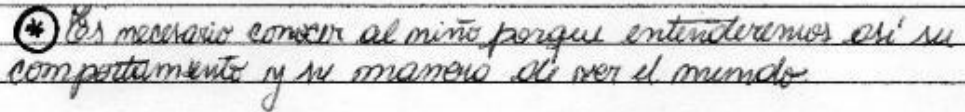 (*) Es necesario conocer al niño porque entenderemos así su
comportamiento y su manera de ver el mundo